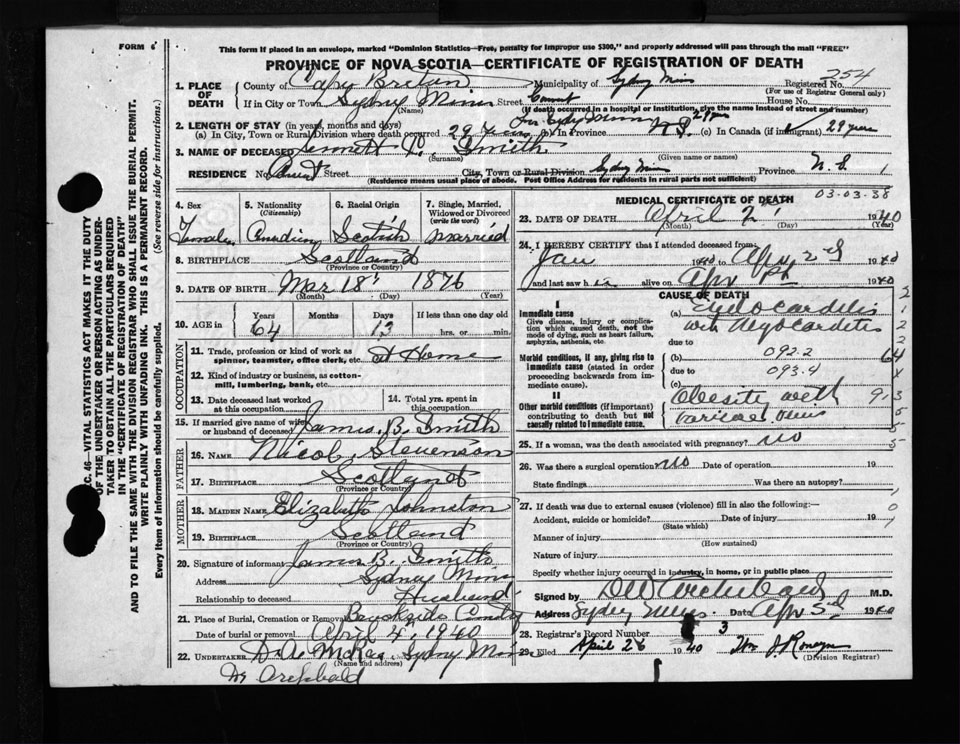 FORM 6
This form if placed in an envelope, marked "Dominion Statistics—Free, penalty for improper use $300," and properly addressed will pass through the mail "FREE"
PROVINCE OF NOVA SCOTIA—CERTIFICATE OF REGISTRATION OF DEATH
254
1. PLACE OF DEATH
County of Cape Breton Municipality of Sydney Mines Registered No.
(For use of Registrar General only)
If in City or Town Sydney Mines Street House No.
(Name) (If death occurred in a hospital or institution, give the name instead of street and number)
2. LENGTH OF STAY (in years, months and days)
(a) In City, Town or Rural Division where death occurred 29 (b) In Province N.S. (c) In Canada (if immigrant) 29 years
3. NAME OF DECEASED Smith
(Surname) (Given name or names)
RESIDENCE No. Street City, Town or Rural Division Sydney Mines Province N.S.
(Residence means usual place of abode. Post Office Address for residents in rural parts not sufficient)
SEC. 46—VITAL STATISTICS ACT MAKES IT THE DUTY
OF THE UNDERTAKER OR PERSON ACTING AS UNDER-
TAKER TO OBTAIN ALL THE PARTICULARS REQUIRED
IN THE "CERTIFICATE OF REGISTRATION OF DEATH"
AND TO FILE THE SAME WITH THE DIVISION REGISTRAR WHO SHALL ISSUE THE BURIAL PERMIT.
WRITE PLAINLY WITH UNFADING INK. THIS IS A PERMANENT RECORD.
Every item of information should be carefully supplied. (See reverse side for instructions.)
4. Sex
Female
5. Nationality
(Citizenship)
Canadian
6. Racial Origin
Scotish
7. Single, Married,
Widowed or Divorced
(write the word)
married
8. BIRTHPLACE Scotland
(Province or Country)
9. DATE OF BIRTH Mar 18 1876
(Month) (Day) (Year)
10. AGE in
Years Months Days If less than one day old
64 13 hrs. or min.
OCCUPATION
11. Trade, profession or kind of work as
spinner, teamster, office clerk, etc. at Home
12. Kind of industry or business, as cotton-
mill, lumbering, bank, etc.
13. Date deceased last worked
at this occupation
14. Total yrs. spent in
this occupation
15. If married give name of wife
or husband of deceased James B. Smith
FATHER
16. NAME Nicob Stevenson
17. BIRTHPLACE Scotland
(Province or Country)
MOTHER
18. MAIDEN NAME Elizabeth Johnston
19. BIRTHPLACE Scotland
(Province or Country)
20. Signature of informant James B. Smith
Address Sydney Mines
Relationship to deceased Husband
21. Place of Burial, Cremation or Removal Brookside
Date of burial or removal April 4, 1940
22. UNDERTAKER McRae, Sydney Mines
(Name and address)
Archibald
03-03-38
MEDICAL CERTIFICATE OF DEATH
23. DATE OF DEATH April 2 1940
(Month) (Day) (Year)
24. I HEREBY CERTIFY that I attended deceased from:
Jan 1940 to Apr 2nd 1940
and last saw h alive on Apr 1940
CAUSE OF DEATH
I
Immediate cause
Give disease, injury or complica-
tion which caused death, not the
mode of dying, such as heart failure,
asphyxia, asthenia, etc.
(a) Endocarditis
with Myocarditis
due to
Morbid conditions, if any, giving rise to
immediate cause (stated in order
proceeding backwards from im-
mediate cause).
(b) 092.2
due to 093.4
(c)
II
Other morbid conditions (if important)
contributing to death but not
causally related to immediate cause.
Obesity with
varicose veins
25. If a woman, was the death associated with pregnancy? no
26. Was there a surgical operation? no Date of operation 19
State findings Was there an autopsy?
27. If death was due to external causes (violence) fill in also the following:—
Accident, suicide or homicide? Date of injury 19
(State which)
Manner of injury
(How sustained)
Nature of injury
Specify whether injury occurred in industry, in home, or in public place
Signed by M.D.
Address Sydney Mines Date Apr 1940
28. Registrar's Record Number 3
29. Filed April 26 1940
(Division Registrar)